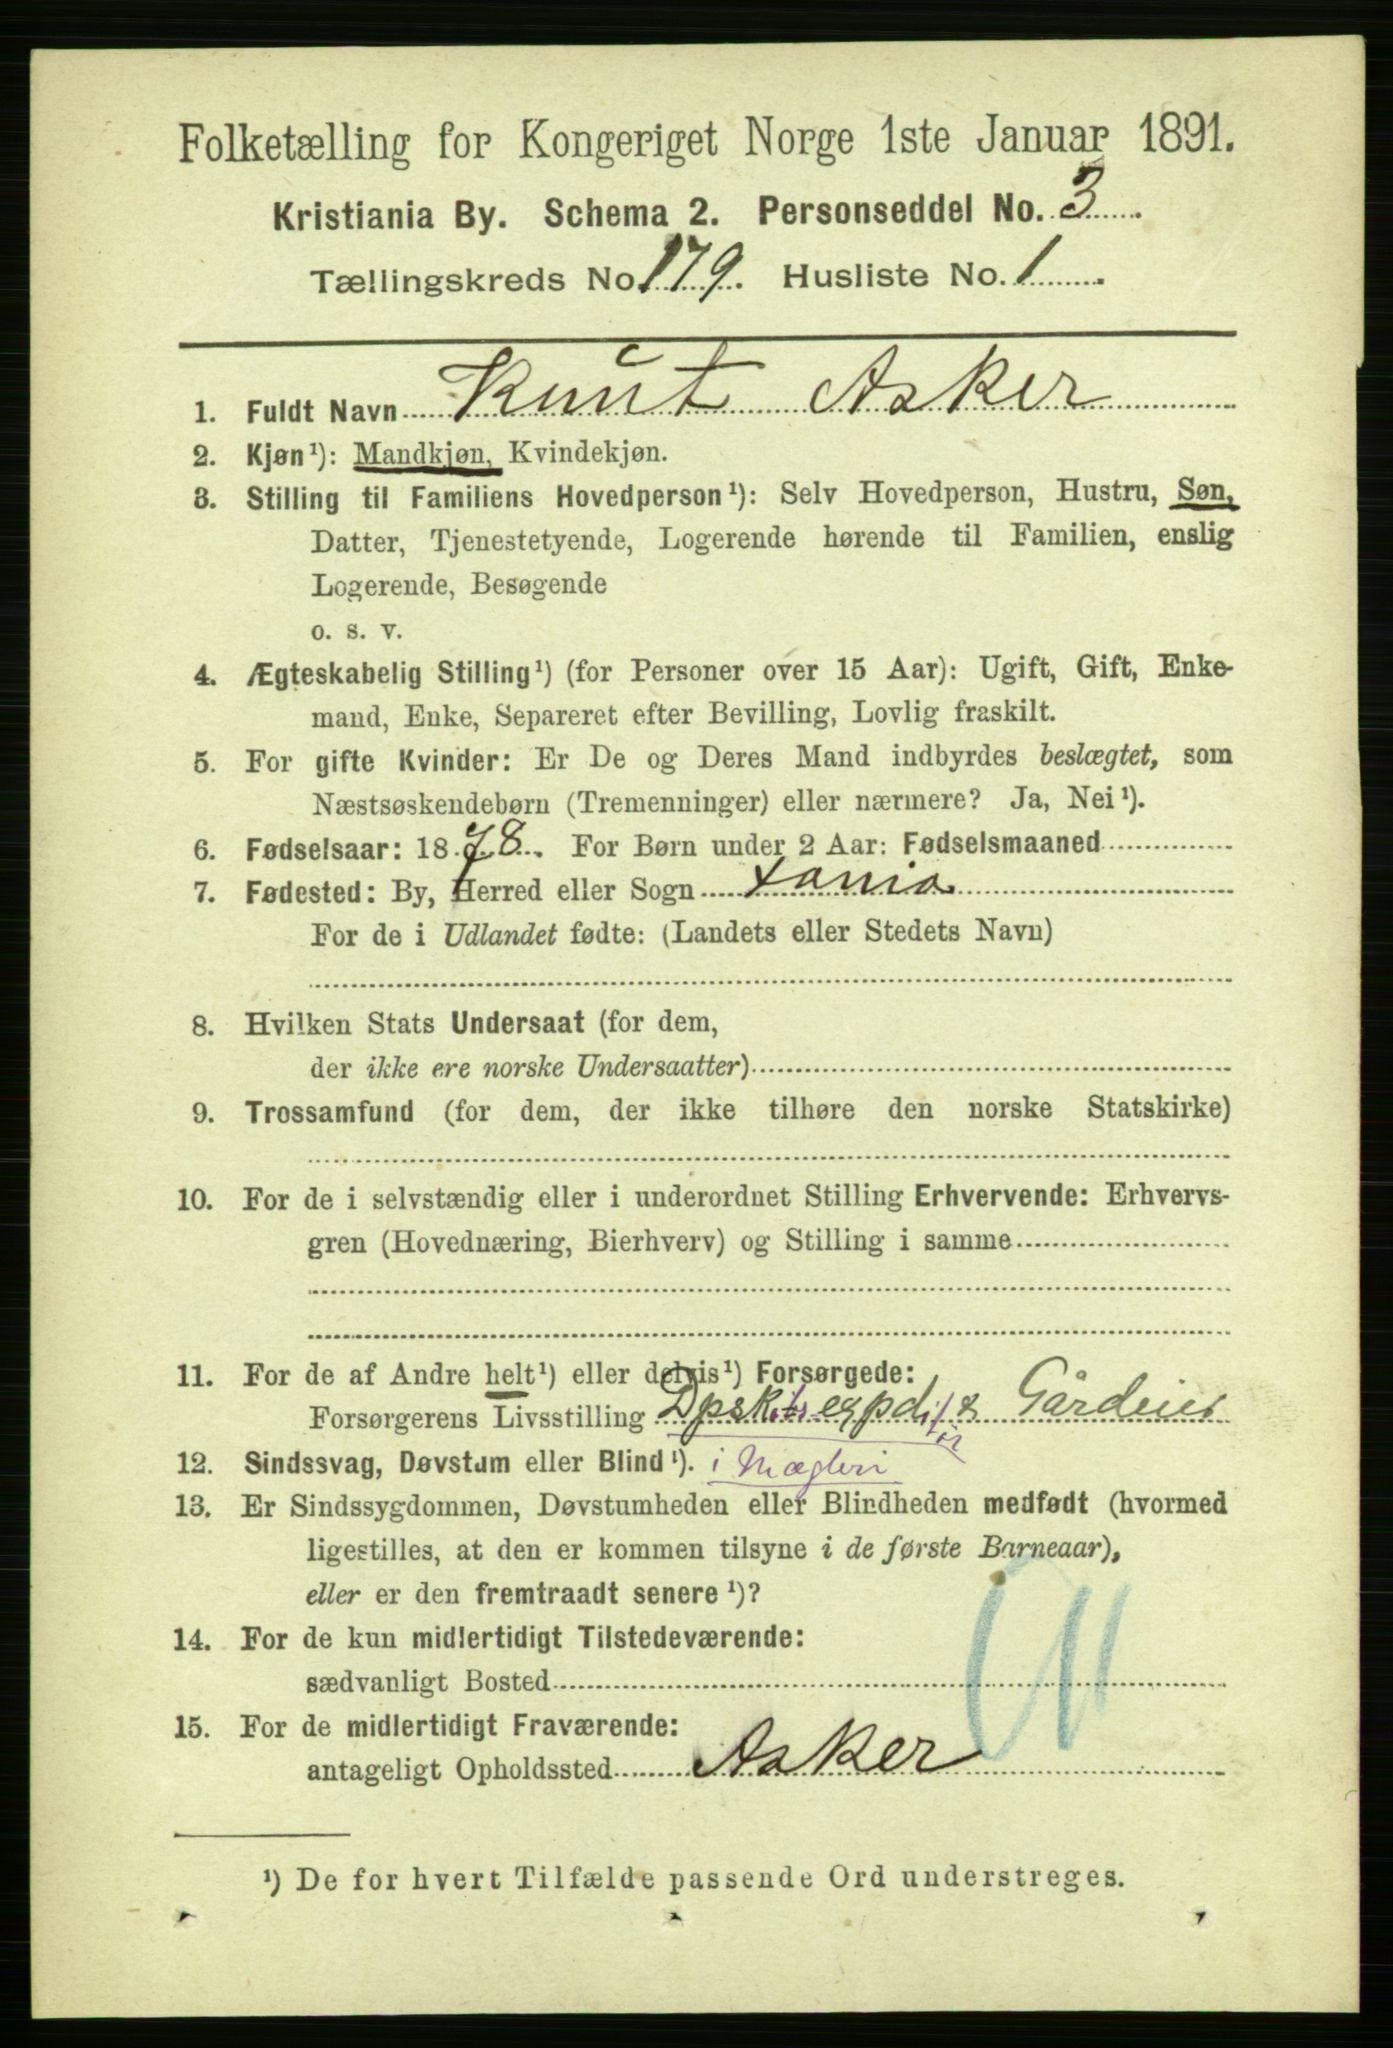 Folketælling for Kongeriget Norge 1ste Januar 1891.
Kristiania By. Schema 2. Personseddel No. 3
Tællingskreds No. 179. Husliste No. 1
1. Fuldt Navn Knut Asker
2. Kjøn¹): Mandkjøn, Kvindekjøn.
3. Stilling til Familiens Hovedperson¹): Selv Hovedperson, Hustru, Søn,
Datter, Tjenestetyende, Logerende hørende til Familien, enslig
Logerende, Besøgende
o. s. v.
4. Ægteskabelig Stilling¹) (for Personer over 15 Aar): Ugift, Gift, Enke-
mand, Enke, Separeret efter Bevilling, Lovlig fraskilt.
5. For gifte Kvinder: Er De og Deres Mand indbyrdes beslægtet, som
Næstsøskendebørn (Tremenninger) eller nærmere? Ja, Nei¹).
6. Fødselsaar: 1878. For Børn under 2 Aar: Fødselsmaaned
7. Fødested: By, Herred eller Sogn Xania
For de i Udlandet fødte: (Landets eller Stedets Navn)
8. Hvilken Stats Undersaat (for dem,
der ikke ere norske Undersaatter)
9. Trossamfund (for dem, der ikke tilhøre den norske Statskirke)
10. For de i selvstændig eller i underordnet Stilling Erhvervende: Erhvervs-
gren (Hovednæring, Bierhverv) og Stilling i samme
11. For de af Andre helt¹) eller delvis¹) Forsørgede:
Forsørgerens Livsstilling Dpsk.s expditør & Gårdeier
12. Sindssvag, Døvstum eller Blind¹). i Mægleri
13. Er Sindssygdommen, Døvstumheden eller Blindheden medfødt (hvormed
ligestilles, at den er kommen tilsyne i de første Barneaar),
eller er den fremtraadt senere¹)?
14. For de kun midlertidigt Tilstedeværende:
sædvanligt Bosted
15. For de midlertidigt Fraværende:
antageligt Opholdssted Asker
¹) De for hvert Tilfælde passende Ord understreges.